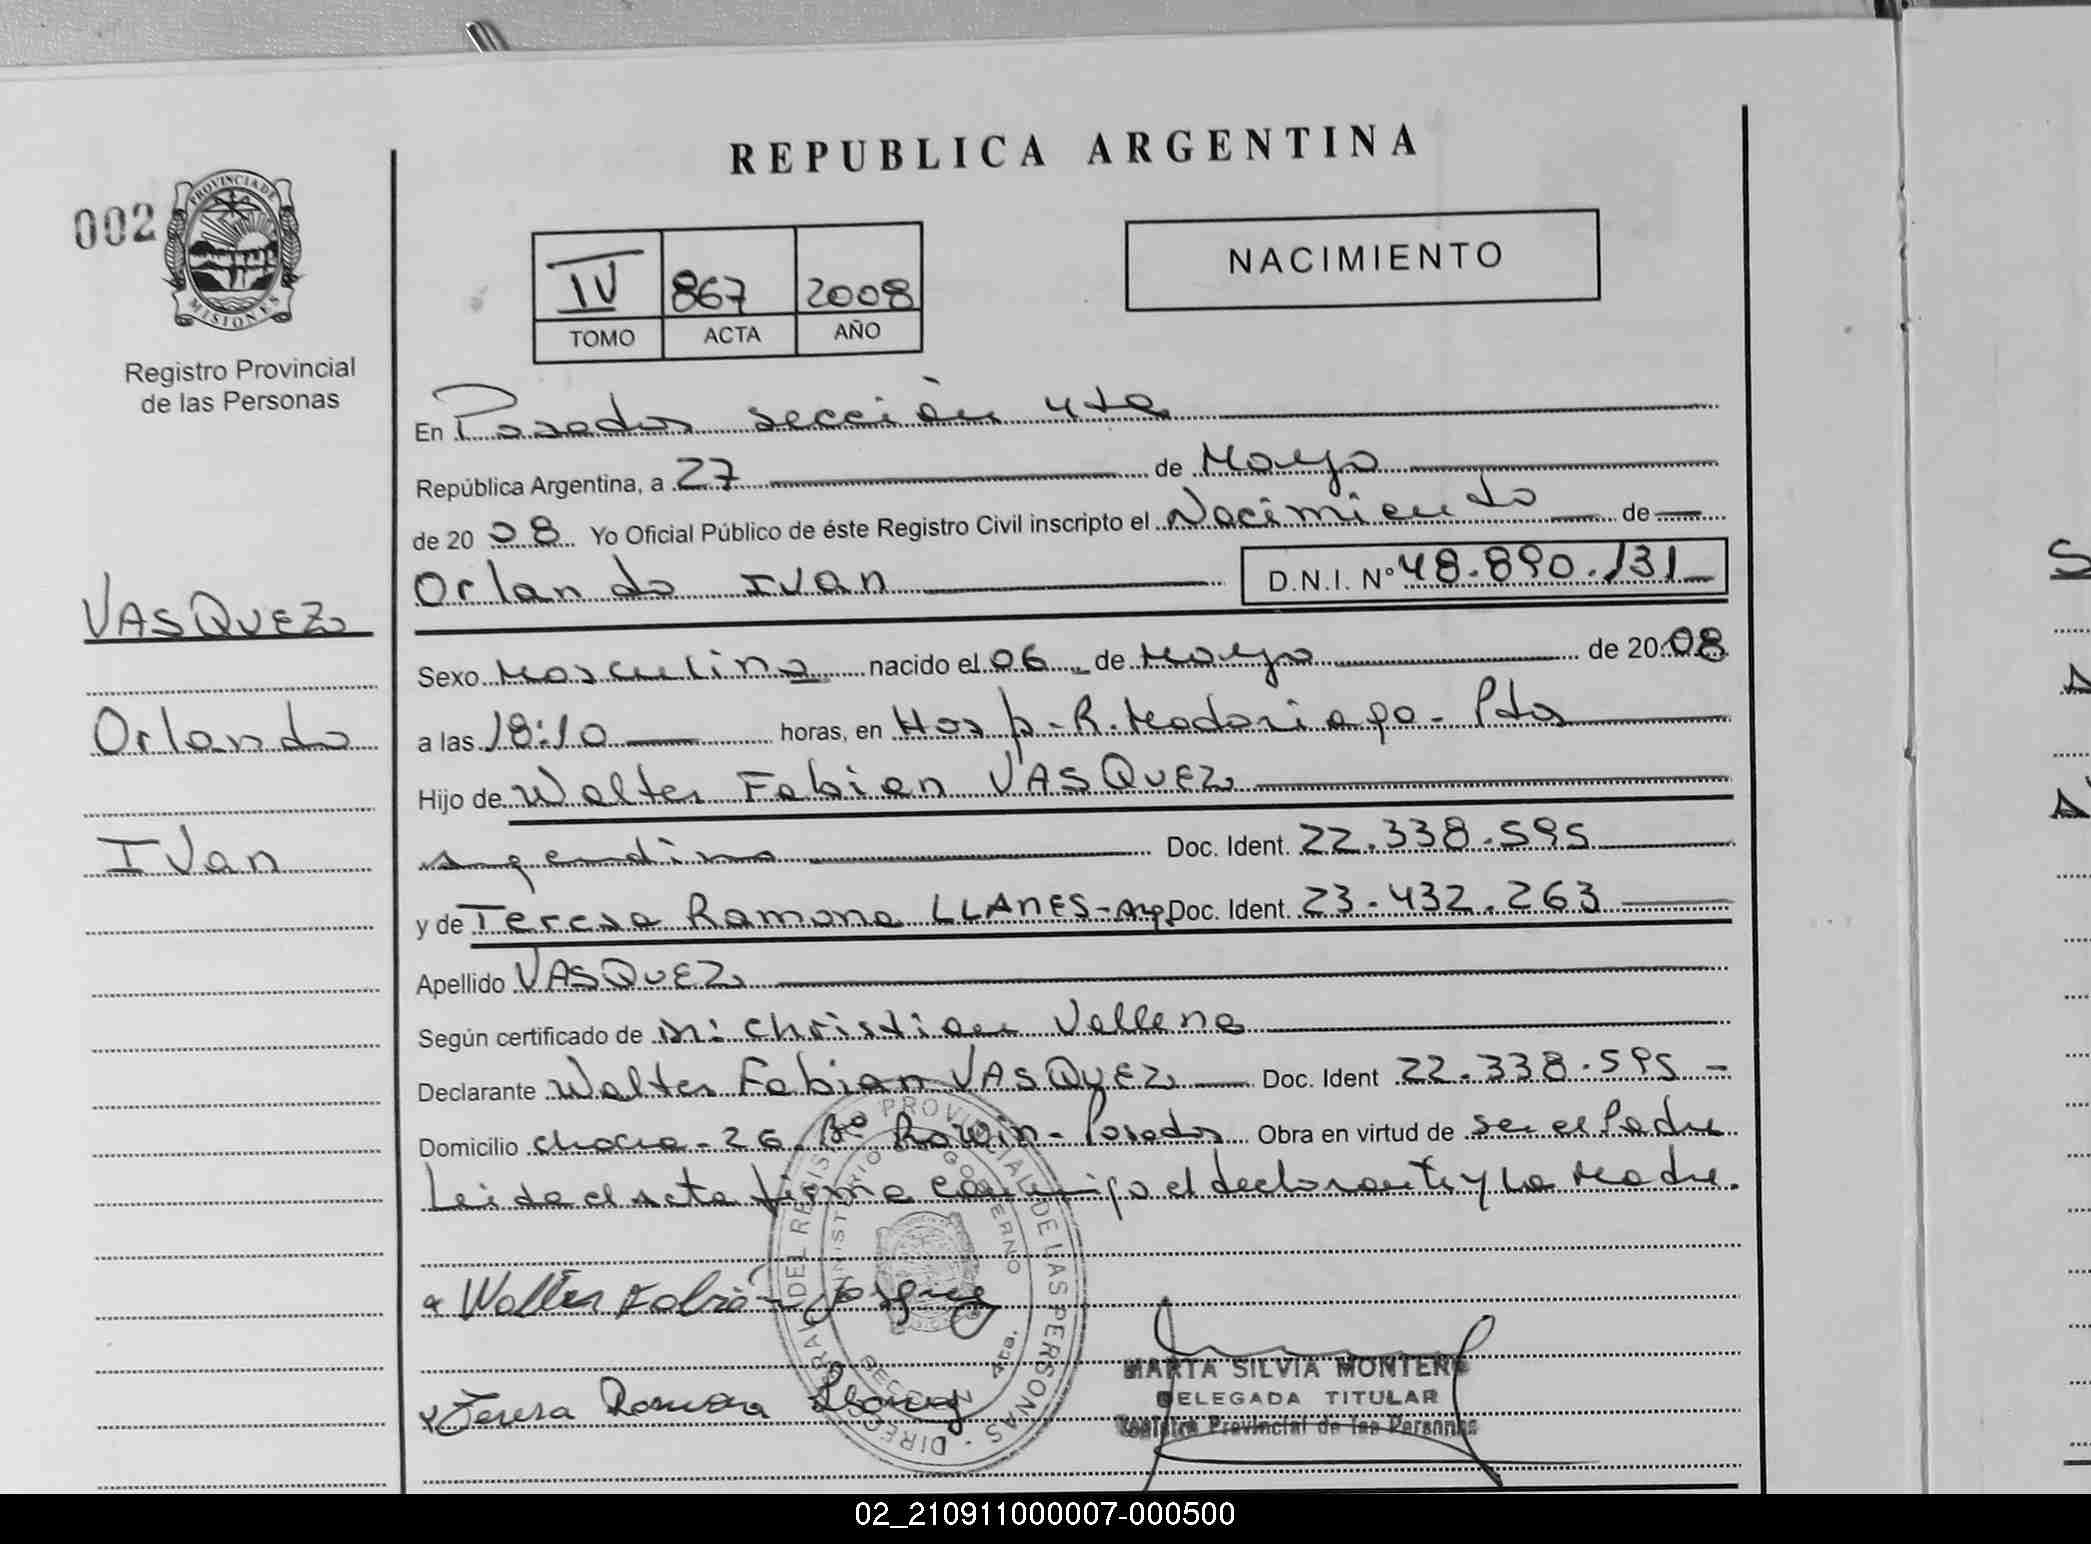 REPUBLICA ARGENTINA
002
PROVINCIA DE
MISIONES
Registro Provincial
de las Personas
IV 867 2008
TOMO ACTA AÑO
NACIMIENTO
En Posadas sección 4ta
República Argentina, a 27 de Mayo
de 20 08 Yo Oficial Público de éste Registro Civil inscripto el Nacimiento de
Orlando Ivan D.N.I. Nº 48.890.131
VASQUEZ
Orlando
Ivan
Sexo Masculino nacido el 06 de Mayo de 20 08
a las 18:10 horas, en Hosp - R. Madariaga - Pdas
Hijo de Walter Fabian VASQUEZ
argentino Doc. Ident. 22.338.595
y de Teresa Ramona LLANES - Arg. Doc. Ident. 23.432.263
Apellido VASQUEZ
Según certificado de Christian Vallena
Declarante Walter Fabian VASQUEZ Doc. Ident 22.338.595 -
Domicilio chacra - 26 Bº - Posadas Obra en virtud de ser el Padre
Leida el acta firma conmigo el declarante y la Madre.
Walter Fabián Vasquez
Teresa Ramona Llanes
DIRECCION GENERAL DEL REGISTRO PROVINCIAL DE LAS PERSONAS
MINISTERIO DE GOBIERNO
SECCION 4ta.
MARTA SILVIA MONTERO
DELEGADA TITULAR
Registro Provincial de las Personas
02_210911000007-000500